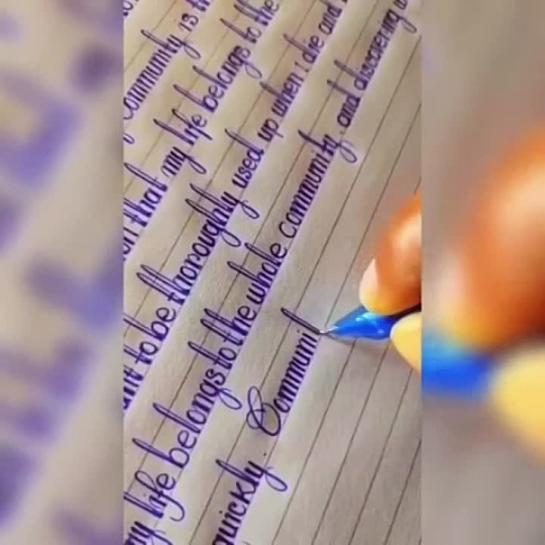 Community is th
that my life belongs to the
to be thoroughly used up when i die and
my life belongs to the whole Community, and discovering
quickly. Communi